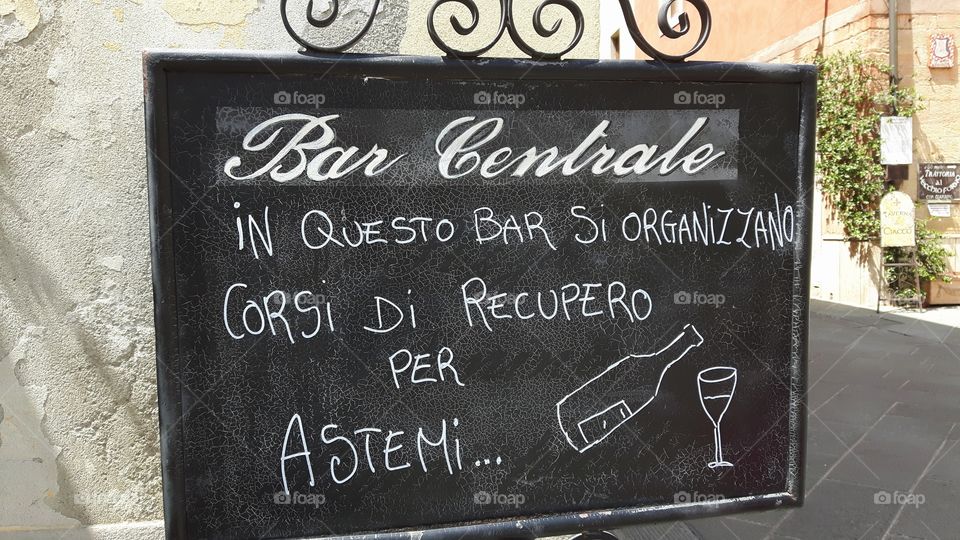 Bar Centrale
iN QUESTO BAR Si ORGANIZZANO
CORSi Di RECUPERO
PER
ASTEMi...
TRATTORIA
TAVERNA
CIACCO
foap
foap
foap
foap
foap
foap
foap
foap
foap
foap
foap